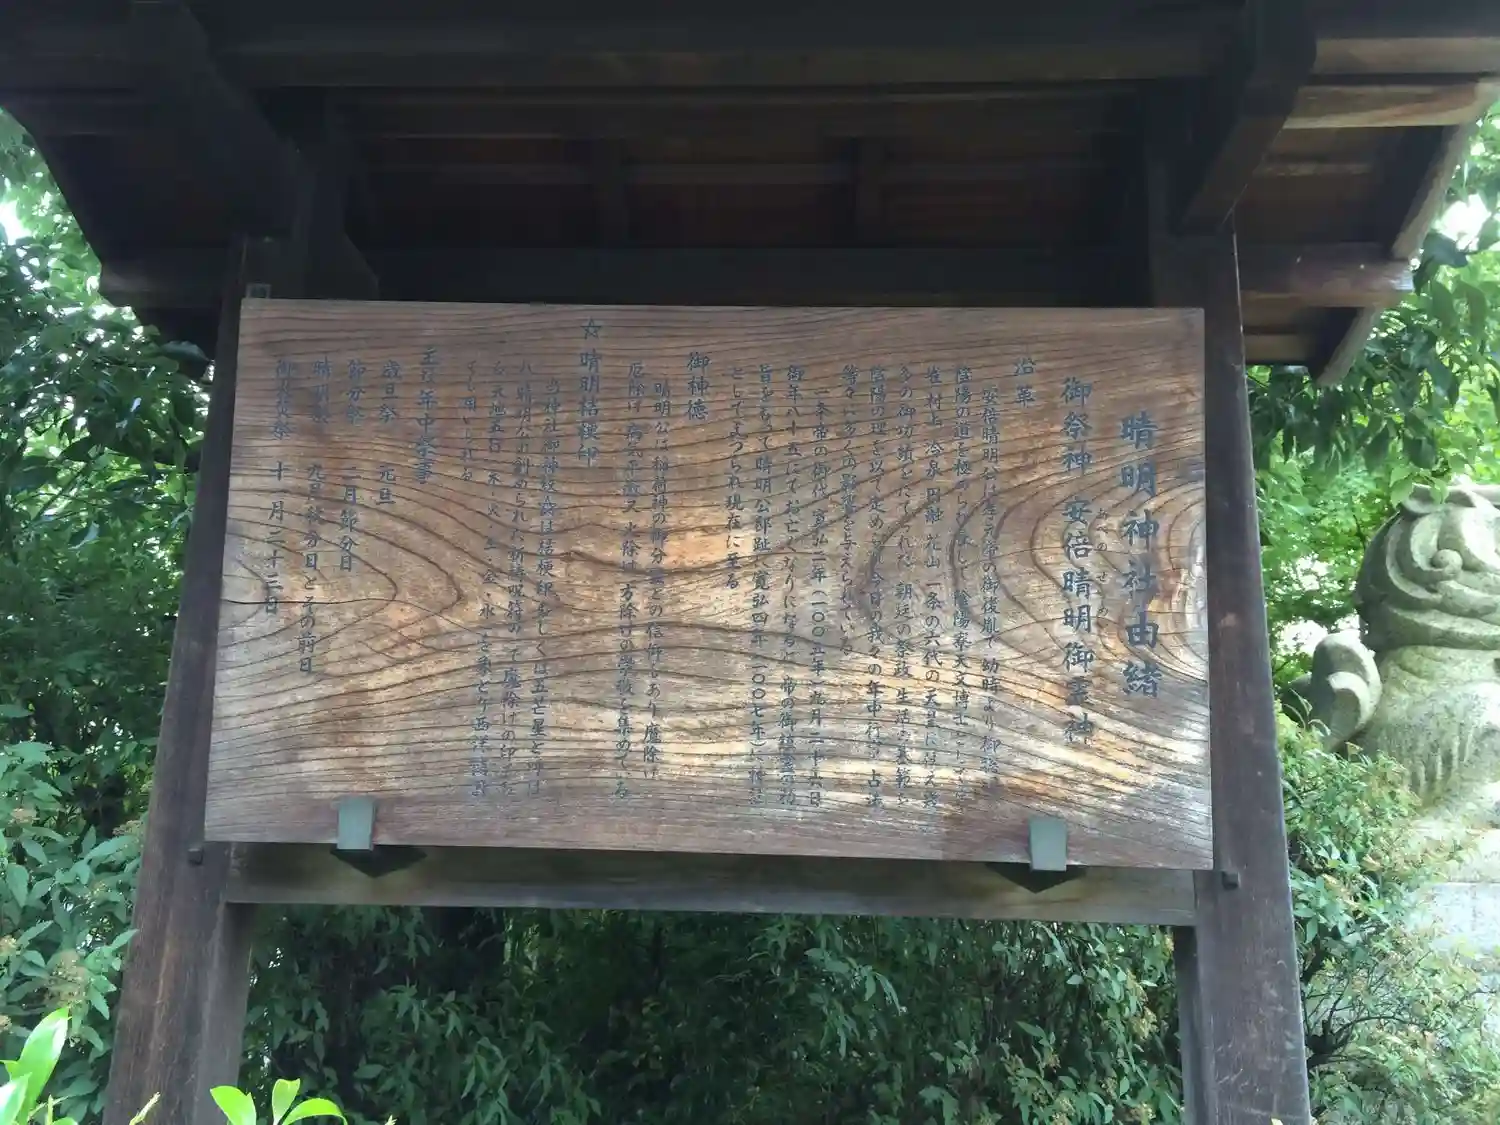 晴明神社由緒
御祭神 安倍晴明御霊神
沿革
安倍晴明公は孝元帝の御後胤で幼時より
陰陽の道を極められまして、陰陽寮天文博士として
村上、冷泉、円融、花山、一条の六代の天皇に仕え
多くの御功績をたてられた。朝廷の祭政、生活の基範と
陰陽の理を以て定められ、今日の我々の年中行事、占法
等々に多くの影響を与えられている
一条帝の御代、寛弘二年(一〇〇五年)九月二十六日
御年八十五にてお亡くなりになるや、帝の御
旨をもって晴明公邸趾へ寛弘四年(一〇〇七年)
としてまつられ現在に至る
御神徳
晴明公は稲荷神の御分霊との信仰もあり、魔除け
厄除け、病気平癒又、火除け、方除けの尊敬を集めている
☆晴明桔梗印
当神社御神紋☆は桔梗印もしくは五芒星と呼ば
れ晴明公が創められた祈祷呪符の一て魔除けの印
天地五行、木・火・土・金・水、を
ても用いられる
主な年中祭事
歳旦祭 元旦
節分祭 二月節分日
晴明祭 九月秋分日とその前日
御火焚祭 十一月二十三日